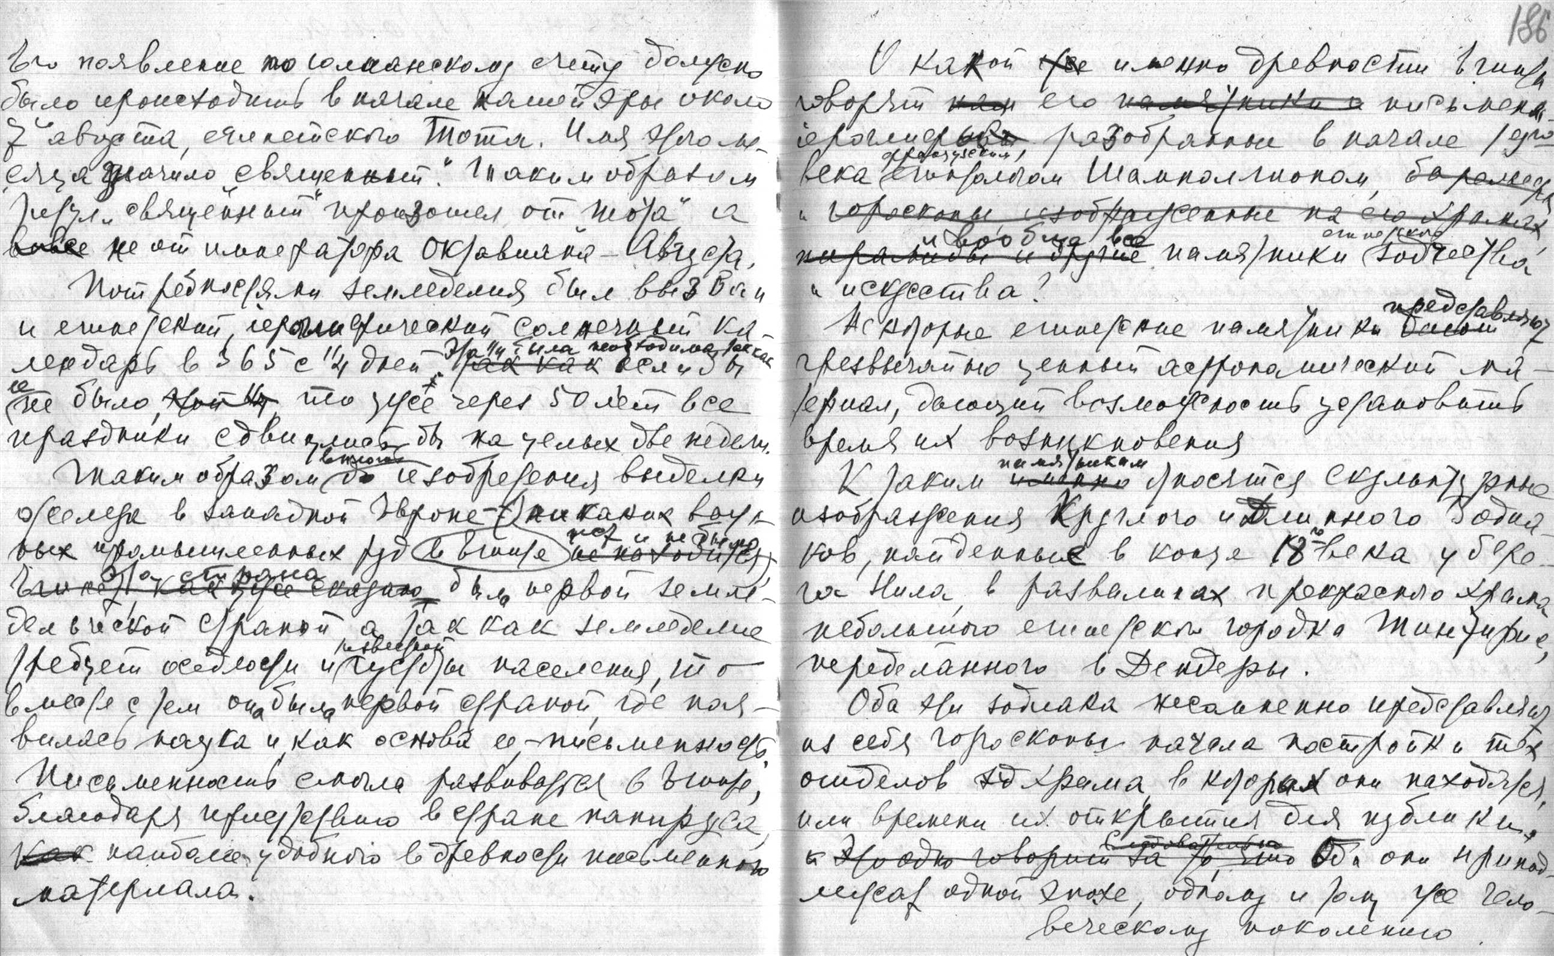 Его появление по юлианскому счету должно
было происходить в начале нашей эры около
7 августа, египетского Тота. Имя этого ме-
сяца значило „священный“. Таким образом
титул „священный“ произошел от Тота и
вовсе не от императора Октавиана – Августа.
Потребностями земледелия был вызван
и египетский, иероглифический солнечный ка-
лендарь в 365 с 1/4 дней. Эта 1/4 была необходима, так как
так как если бы
ее не было, то уже через 50 лет все
праздники сдвинулись бы на целых две недели.
Таким образом до изобретения выделки
оселедок в западной Европе – никаких важ-
ных промышленных руд в Египте нет и не было
не находится
эта страна
Египет как уже сказано был первой земле-
дельческой страной, а так как земледелие
требует оседлости и известной густоты населения, то
вместе с тем она была первой страной, где поя-
вилась наука и, как основа ее – письменность.
Письменность смогла развиваться в Египте,
благодаря присутствию в стране папируса,
как наиболее удобного в древности письменного
материала.
186
О какой же именно древности Египта
говорят нам его памятники и письмена
иероглифы разобранные в начале 19го
века французским египтологом Шамполлионом, барельефы
и гороскопы, изображенные на его храмах,
пирамиды и другие и вообще все памятники египетского зодчества
и искусства?
Некоторые египетские памятники дают представляют
чрезвычайно ценный астрономический ма-
териал, дающий возможность установить
время их возникновения
К таким именно памятникам относятся скульптурные
изображения Круглого и Длинного Зодиа-
ков, найденные в конце 18го века у бере-
га Нила, в развалинах прекрасного храма
небольшого египетского городка Тинтирис,
переделанного в Дендеры.
Оба эти зодиака несомненно представляют
из себя гороскопы начала постройки тех
отделов храма, в которых они находятся,
или времени их открытия для публики,
и это одно говорит за то, что Следовательно Оба они принад-
лежат одной эпохе, одному и тому же чело-
веческому поколению